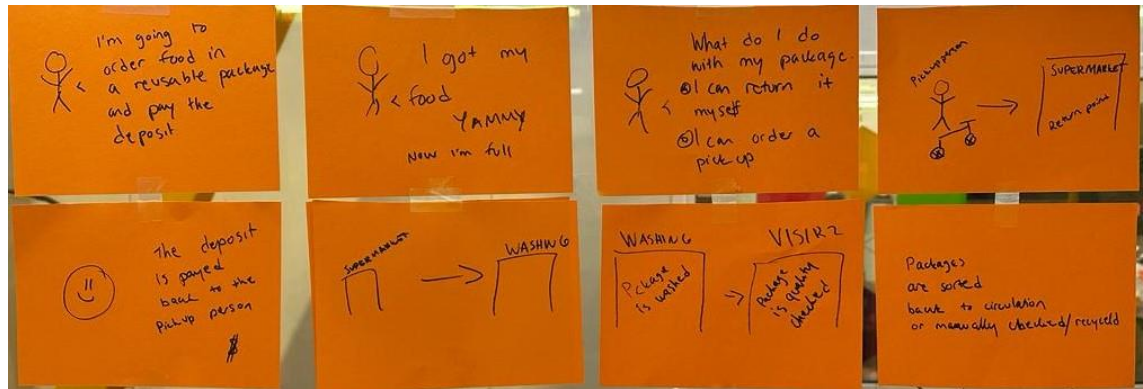 I'm going to
order food in
a reusable package
and pay the
deposit
I got my
food
YAMMY
NOW I'm full
What do I do
with my package.
I can return it
myself
I can order a
pick up
Pick up person
SUPERMARKET
Return point
The deposit
is payed
back to the
pickup person
$
SUPERMARKET
WASHING
WASHING
Pckage
is washed
VISIR2
Package
is quality
checked
Packages
are sorted
back to circulation
or manually checked/recycled